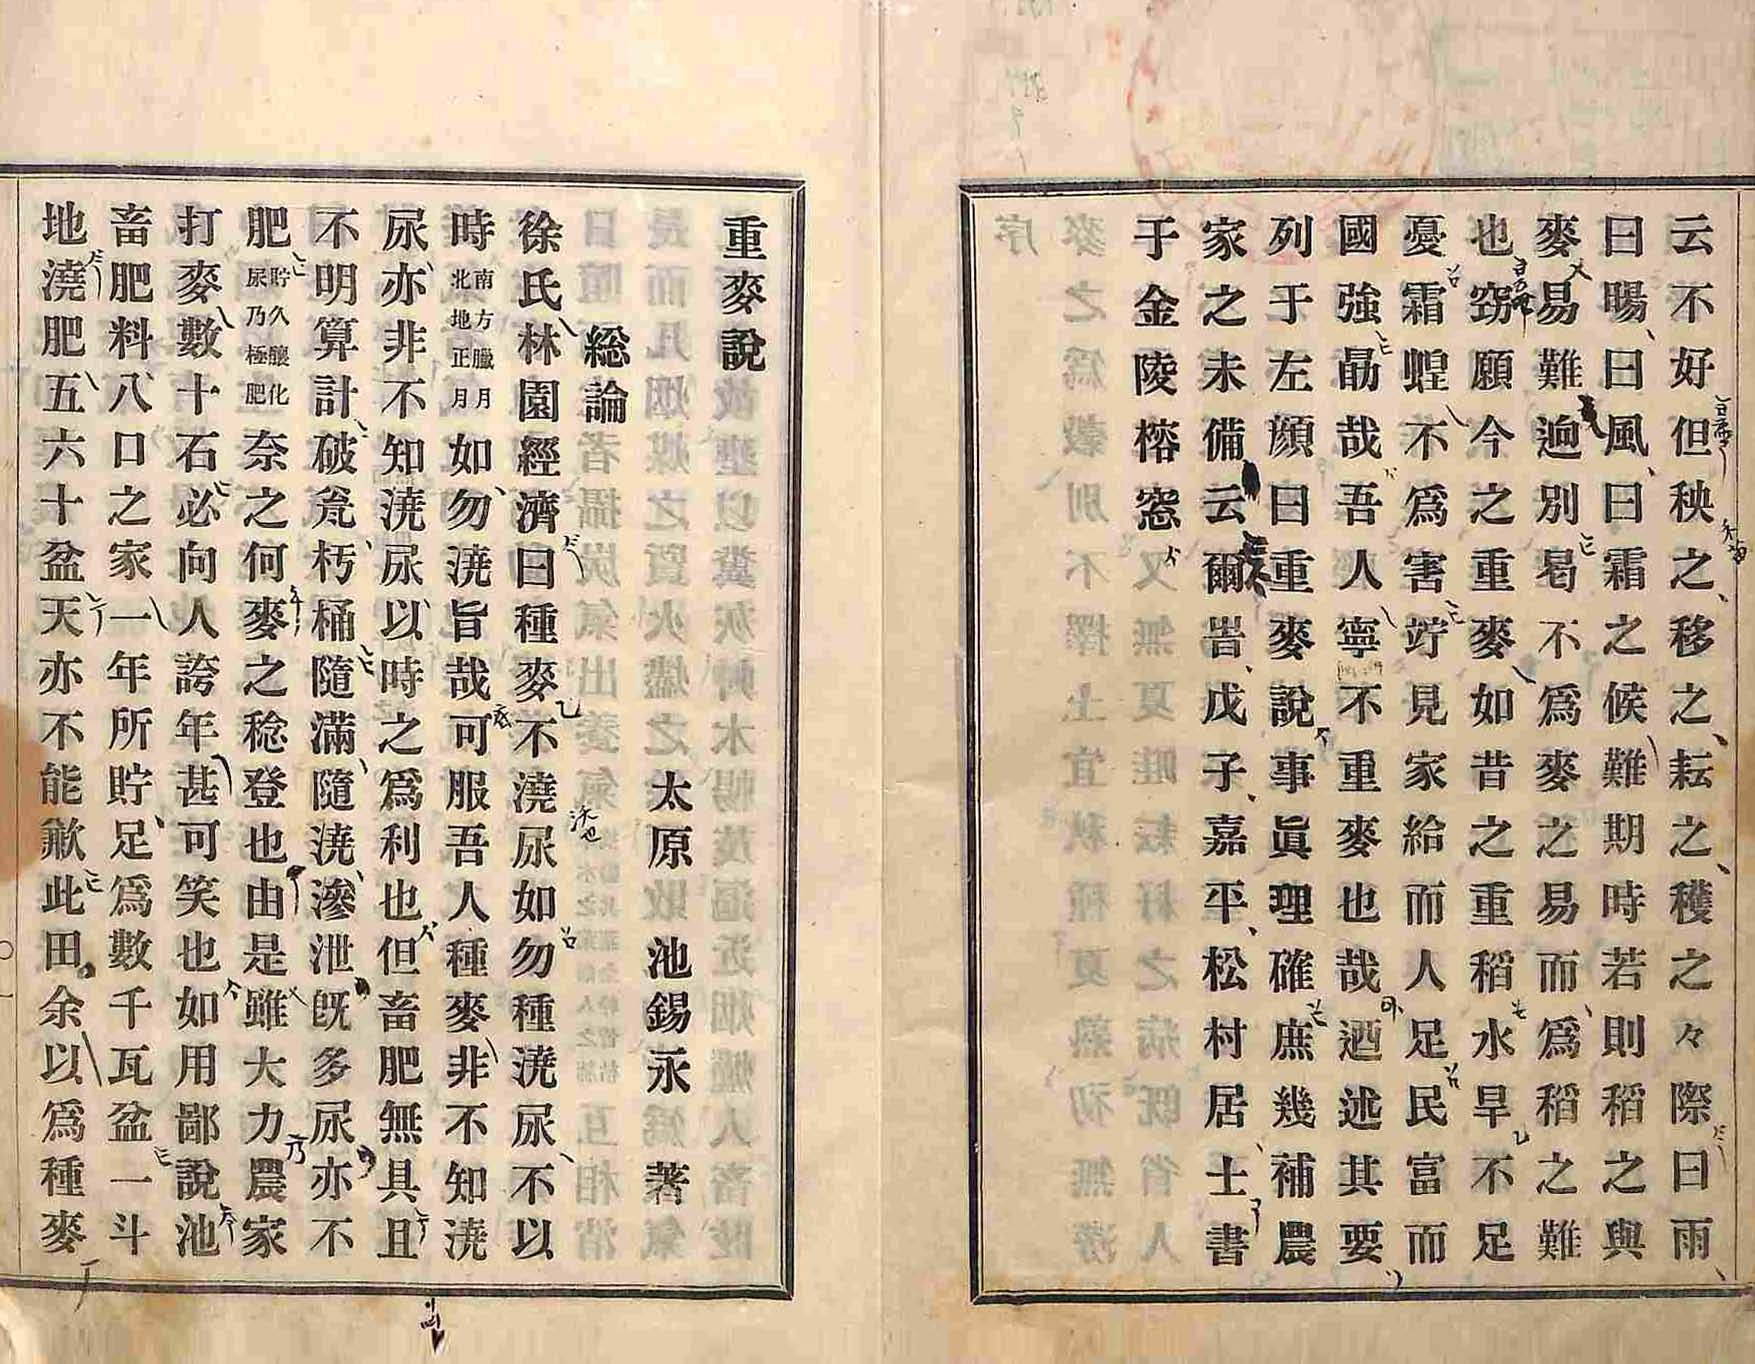 云不好但秧之移之耘之穫之々際曰雨
曰暘曰風曰霜之候難期時若則稻之與
麥易難逈別皃不爲麥之易而爲稻之難
也窃願今之重麥如昔之重稻水旱不足
憂霜蝗不爲害竚見家給而人足民富而
國強勗哉吾人寧不重麥也哉迺述其要
列于左顔曰重麥說事眞理確庶幾補農
家之未備云爾旹戊子嘉平松村居士書
于金陵榕窓
序
重麥說
太原 池錫永 著
総論
徐氏林園經濟曰種麥不澆尿如勿種澆尿不以
時南方臘月北地正月如勿澆旨哉可服吾人種麥非不知澆
尿亦非不知澆尿以時之爲利也但畜肥無具且
不明算計破瓮朽桶隨滿隨澆滲泄旣多尿亦不
肥貯久釀化尿乃極肥奈之何麥之稔登也由是雖大力農家
打麥數十石必向人誇年甚可笑也如用鄙說池
畜肥料八口之家一年所貯足爲數千瓦盆一斗
地澆肥五六十盆天亦不能歉此田余以爲種麥
一